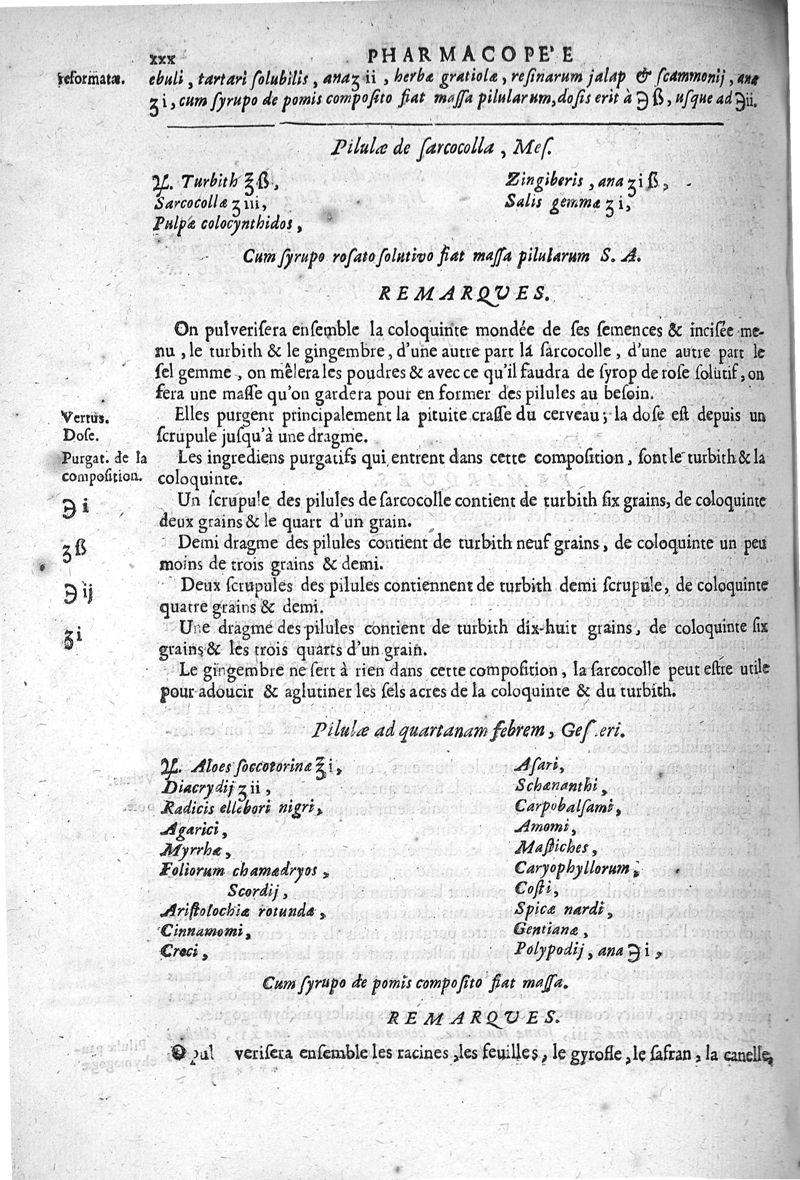 xxx PHARMACOPE'E
reformatæ. ebuli, tartari ſolubilis, ana ʒ ii, herbæ gratiolæ, reſinarum jalap & ſcammonij, ana
ʒ i, cum ſyrupo de pomis compoſito fiat maſſa pilularum, doſis erit à ℈ ß, uſque ad ℈ii.
Pilulæ de ſarcocolla, Meſ.
♃. Turbith ℥ß,
Sarcocollæ ʒ iii,
Pulpæ colocynthidos,
Zingiberis, ana ʒ i ß,
Salis gemmæ ʒ i,
Cum ſyrupo roſato ſolutivo fiat maſſa pilularum S. A.
REMARQUES.
On pulveriſera enſemble la coloquinte mondée de ſes ſemences & inciſée me-
nu, le turbith & le gingembre, d'une autre part la ſarcocolle, d'une autre part le
ſel gemme, on mêlera les poudres & avec ce qu'il faudra de ſyrop de roſe ſolutif, on
fera une maſſe qu'on gardera pour en former des pilules au beſoin.
Vertus. Elles purgent principalement la pituite craſſe du cerveau; la doſe eſt depuis un
Doſe. ſcrupule juſqu'à une dragme.
Purgat. de la Les ingrediens purgatifs qui entrent dans cette compoſition, ſont le turbith & la
compoſition. coloquinte.
℈ i Un ſcrupule des pilules de ſarcocolle contient de turbith ſix grains, de coloquinte
deux grains & le quart d'un grain.
ʒ ß Demi dragme des pilules contient de turbith neuf grains, de coloquinte un peu
moins de trois grains & demi.
℈ ij Deux ſcrupules des pilules contiennent de turbith demi ſcrupule, de coloquinte
quatre grains & demi.
ʒ i Une dragme des pilules contient de turbith dix-huit grains, de coloquinte ſix
grains & les trois quarts d'un grain.
Le gingembre ne ſert à rien dans cette compoſition, la ſarcocolle peut eſtre utile
pour adoucir & aglutiner les ſels acres de la coloquinte & du turbith.
Pilulæ ad quartanam febrem, Geſneri.
♃. Aloes ſoccotorinæ ℥ i,
Diacrydij ʒ ii,
Radicis ellebori nigri,
Agarici,
Myrrhæ,
Foliorum chamædryos,
Scordij,
Ariſtolochiæ rotundæ,
Cinnamomi,
Croci,
Aſari,
Schœnanthi,
Carpobalſami,
Amomi,
Maſtiches,
Caryophyllorum,
Coſti,
Spicæ nardi,
Gentianæ,
Polypodij, ana ℈ i,
Cum ſyrupo de pomis compoſito fiat maſſa.
REMARQUES.
O pul veriſera enſemble les racines, les feuilles, le gyrofle, le ſafran, la canelle,